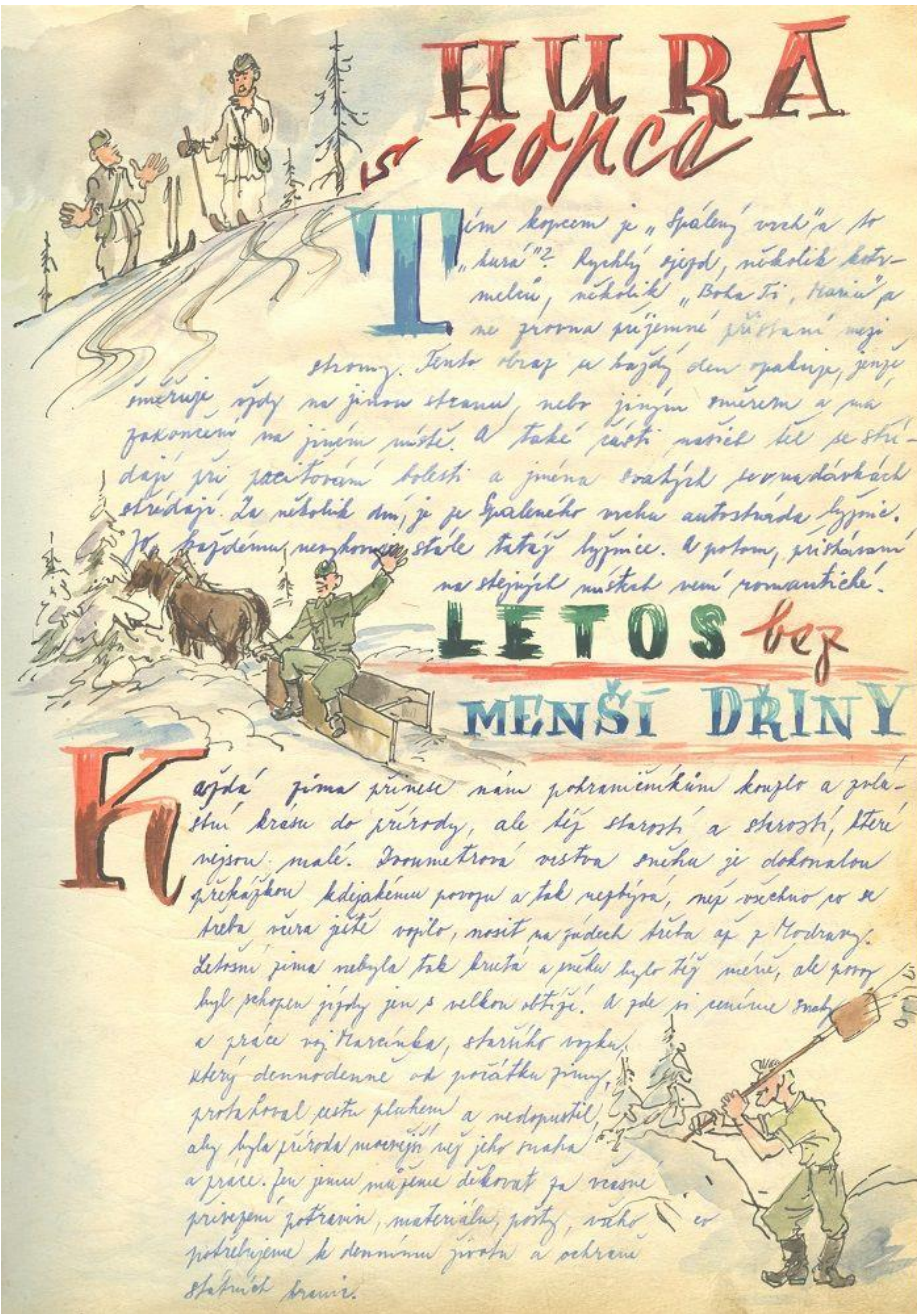 HURÁ
s kopce
Tím kopcem je „Spálený vrch" a to
„hurá"? Rychlý sjezd, několik kotr-
melců, několik „Boha Ti, Maria", a
ne zrovna příjemné přistání mezi
stromy. Tento obraz se každý den opakuje, jenže
směřuje vždy na jinou stranu, nebo jiným směrem a má
zakončení na jiném místě. A také části našich těl se stří-
dají při pociťování bolesti a jména svatých se v nadávkách
střídají. Za několik dní, je ze Spáleného vrchu autostráda lyžnic.
každému nevyhovuje stále tatáž lyžnice. A potom, přistávání
na stejných místech není romantické.
LETOS bez
MENŠÍ DŘINY
Každá zima přinese nám pohraničníkům kouzlo a zvlá-
štní krásu do přírody, ale též starosti, a starosti, které
nejsou malé. Dvoumetrová vrstva sněhu je dokonalou
překážkou kdejakému povozu a tak nezbývá, než všechno co se
třeba včera ještě vozilo, nosit na zádech třeba až z Modravy.
Letošní zima nebyla tak krutá a sněhu bylo též méně, ale povoz
byl schopen jízdy jen s velkou obtíží. A zde si ceníme snahy
a práce voj. Marcinka, staršího vozku,
který dennodenně od počátku zimy,
protahoval cestu pluhem a nedopustil,
aby byla příroda mocnější než jeho snaha
a práce. Jen jemu můžeme děkovat za včasné
přivezení potravin, materiálu, pošty, všeho co
potřebujeme k dennímu životu a ochraně
státních hranic.